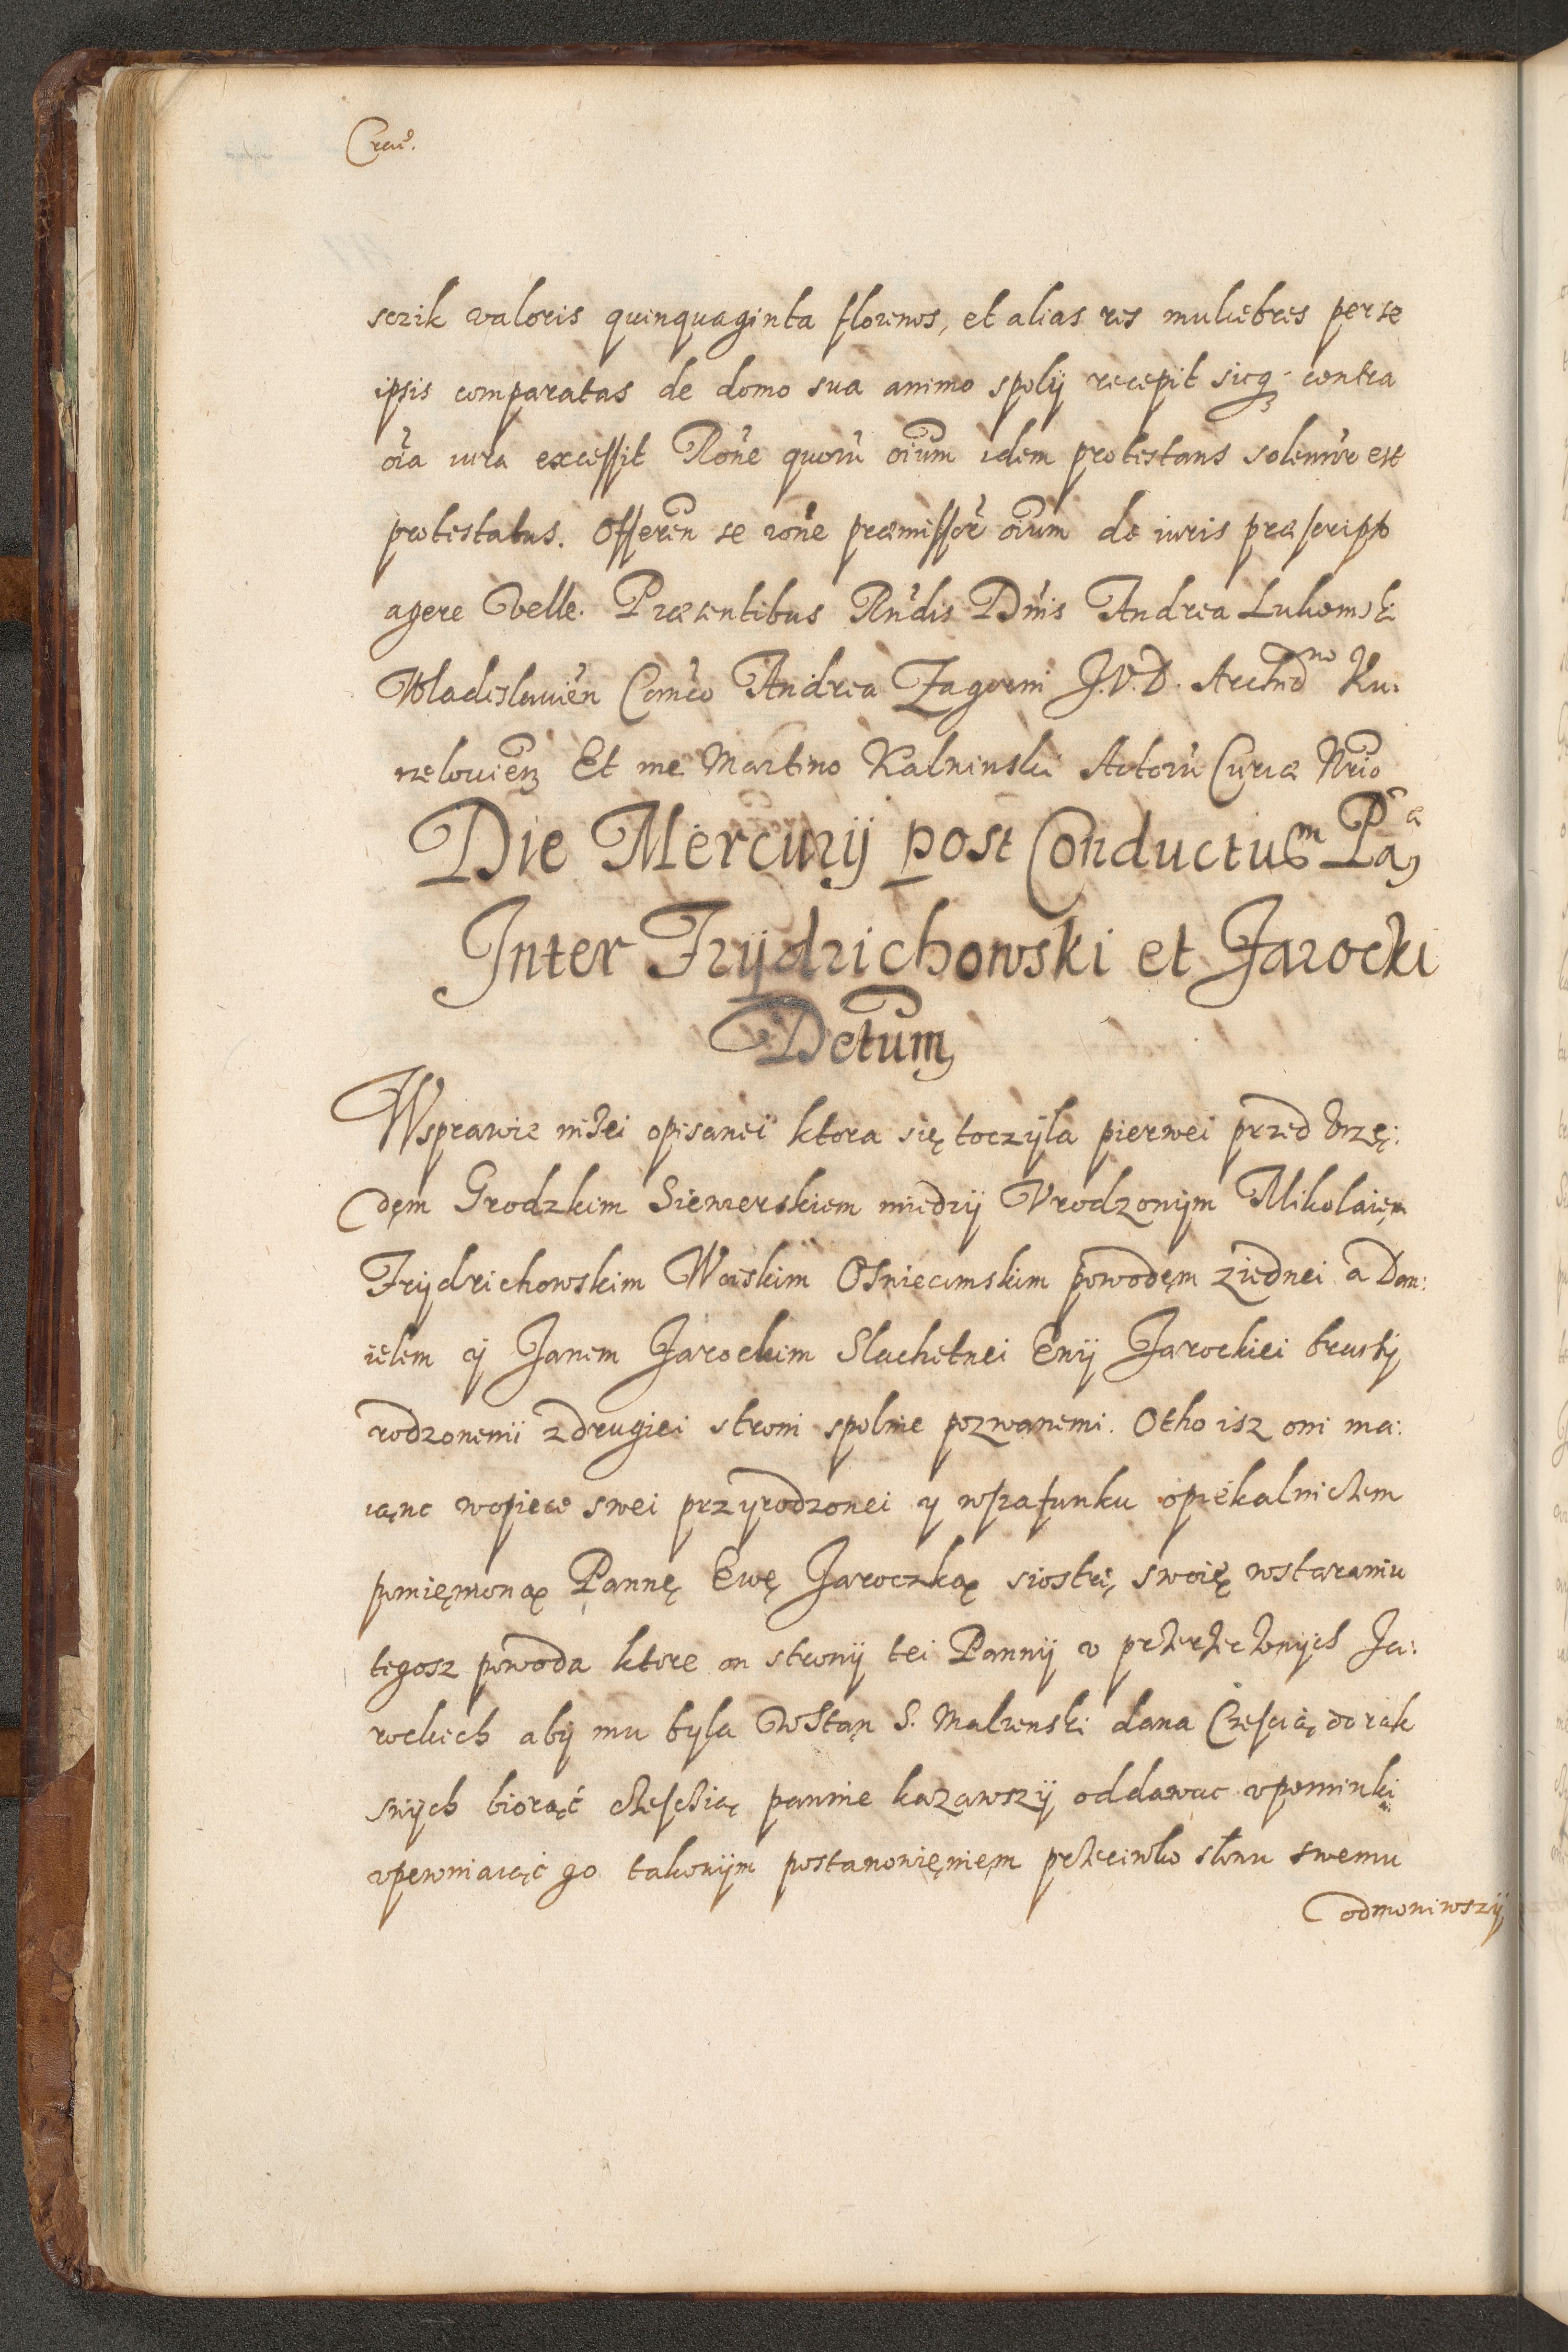 Crac̃.
sczik valoris quinquaginta florenos, et alias res muliebres per se
ipsis comparatas de domo sua animo spolÿ recepit sicq; contra
oĩa iura excessit Rone quorũ oĩum idem protestans solemr̃ est
protestatus. Offeren̄ se rone præmissor̃ oĩum de iuris præscripto
agere Velle. Præsentibus Rñdis Dñis Andrea Lukomski
Wladislauien̄ Canc̃o Andrea Zagorni J.V.D. Archidno Ku:
rzelouien̄ Et me Martino Kalninski Actorũ Curiæ Nrĩo
Die Mercurÿ post Conductus
Inter Frÿdrichowski et Jarocki
Dc̃tum
Wsprawie niżei opisanei ktora się toczÿla pierwei przed Vrzę:
dęm Grodzkim Siewierskiem miedzÿ Vrodzonÿm Mikolaięm
Frÿdrichowskim Woiskim Oswiecimskim powodęm ziednei a Dan:
ielem ÿ Janem Jarockim Slachetnei Ewÿ Jarockiei bracÿ
rodzonemi zdrugiei stroni spolnie pozwanemi. Otho isz oni ma:
iąnc wopiece swei przyrodzonei y wszafunku opiekalniczem
pomięnionąx Pannę Ewę Jaroczkąx siostrę swoię wstaraniu
tegosz powoda ktore on stronÿ tei Pannÿ v przerzeczonÿch Ja:
rockich abÿ mu byla wStąn S. Malzenski dana Częscią do rąk
swÿch biorąć częscią pannie kazawszÿ oddawac vpominki
vpewniaiąć go takowÿm postanowięnięm przeciwko słowu swemu
odmowiwszÿ